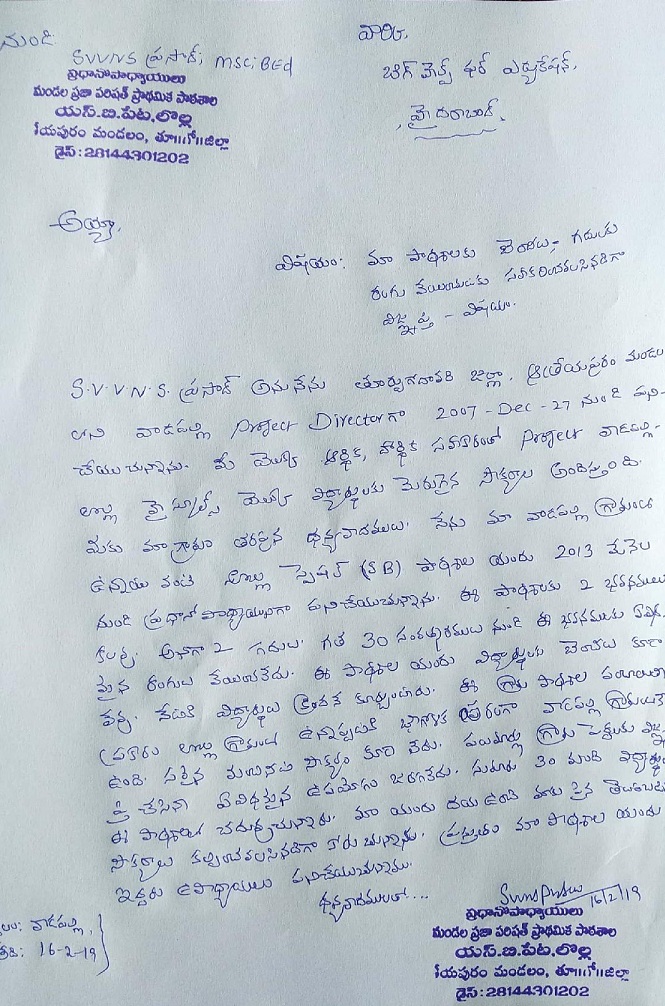 నుండి
SVVNS ప్రసాద్, MSc; BEd
ప్రధానోపాధ్యాయులు
మండల ప్రజా పరిషత్ ప్రాథమిక పాఠశాల
యస్.ఐ.పేట,లొల్ల
యపురం మండలం, తూ॥గో॥జిల్లా
డైస్:28144301202
వారికి,
బిగ్ హెల్ప్ ఫర్ ఎడ్యుకేషన్,
హైదరాబాద్.
అయ్యా,
విషయం: మా పాఠశాలకు బెంచీలు, గదులకు
రంగు వేయించుటకు సహకరించవలసినదిగా
విజ్ఞప్తి - విషయం.
S.V.V.N.S. ప్రసాద్ అను నేను తూర్పుగోదావరి జిల్లా, ఆత్రేయపురం మండలం
లోని వాడపల్లి Project Director గా 2007-Dec-27 నుండి పని
చేయుచున్నాను. మీ యొక్క ఆర్థిక, హార్థిక సహకారంతో Project వాడపల్లి-
లొల్ల హైస్కూల్స్ యొక్క విద్యార్థులకు మెరుగైన సౌకర్యాలు అందిస్తుంది.
మీకు మా గ్రామం తరపున ధన్యవాదములు. నేను మా వాడపల్లి గ్రామంలో
ఉన్నటు వంటి లొల్ల స్పెషల్ పాఠశాల యందు 2013 మే నెల
నుండి ప్రధానోపాధ్యాయునిగా పనిచేయుచున్నాను. ఈ పాఠశాలకు 2 భవనములు
కలవు. అనగా 2 గదులు. గత 30 సంవత్సరముల నుండి ఈ భవనములకు ఏవిధ-
మైన రంగులు వేయలేదు. ఈ పాఠశాల యందు విద్యార్థులకు బెంచీలు కూడా
లేవు. నేటికి విద్యార్థులు క్రిందనే కూర్చుంటారు. ఈ గ్రామ పాఠశాల
ప్రకారం లొల్ల గ్రామంలో ఉన్నప్పటికి భౌగోళిక పరంగా వాడపల్లి గ్రామంలోనే
ఉంది. సరైన సౌకర్యం కూడ లేదు. పలుమార్లు గ్రామ పెద్దలకు విజ్ఞ
ప్తి చేసినా ఏవిధమైన ఉపయోగం జరగలేదు. సుమారు 30 మంది విద్యార్థులు
ఈ పాఠశాలలో చదువుచున్నారు. మా యందు దయ ఉంచి మాకు పైన తెలుపబడిన
సౌకర్యాలు కల్పించవలసినదిగా కోరుచున్నాను. ప్రస్తుతం మా పాఠశాల యందు
ఇద్దరు ఉపాధ్యాయులు పనిచేయుచున్నాము.
ధన్యవాదములతో...
వాడపల్లి,
16-2-19
16/2/19
ప్రధానోపాధ్యాయులు
మండల ప్రజా పరిషత్ ప్రాథమిక పాఠశాల
యస్.ఐ.పేట,లొల్ల
యపురం మండలం, తూ॥గో॥జిల్లా
డైస్:28144301202